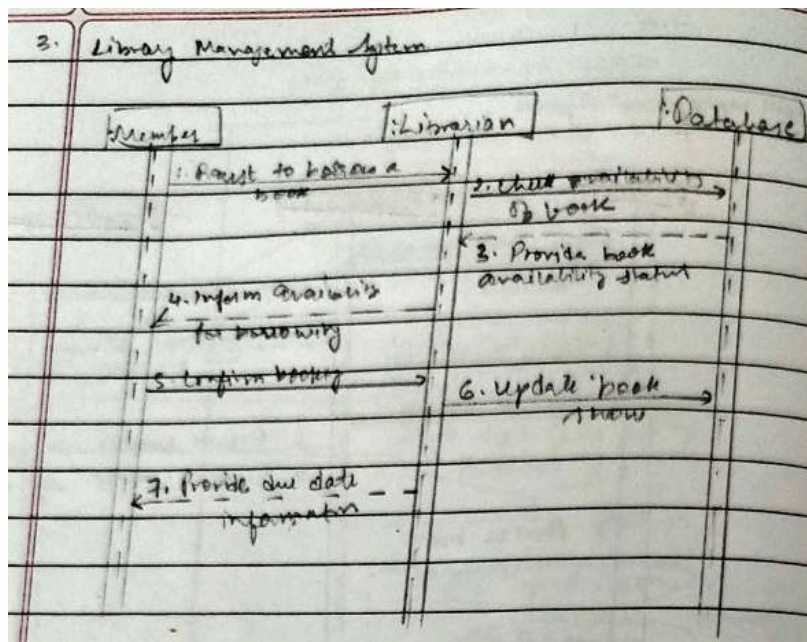 3. Library Management System
:Member
:Librarian
:Database
1: to borrow a
book
2. Check availability
of book
3. Provide book
availability status
4. Inform
for borrowing
5. Confirm
6. Update book
7. Provide due date
information